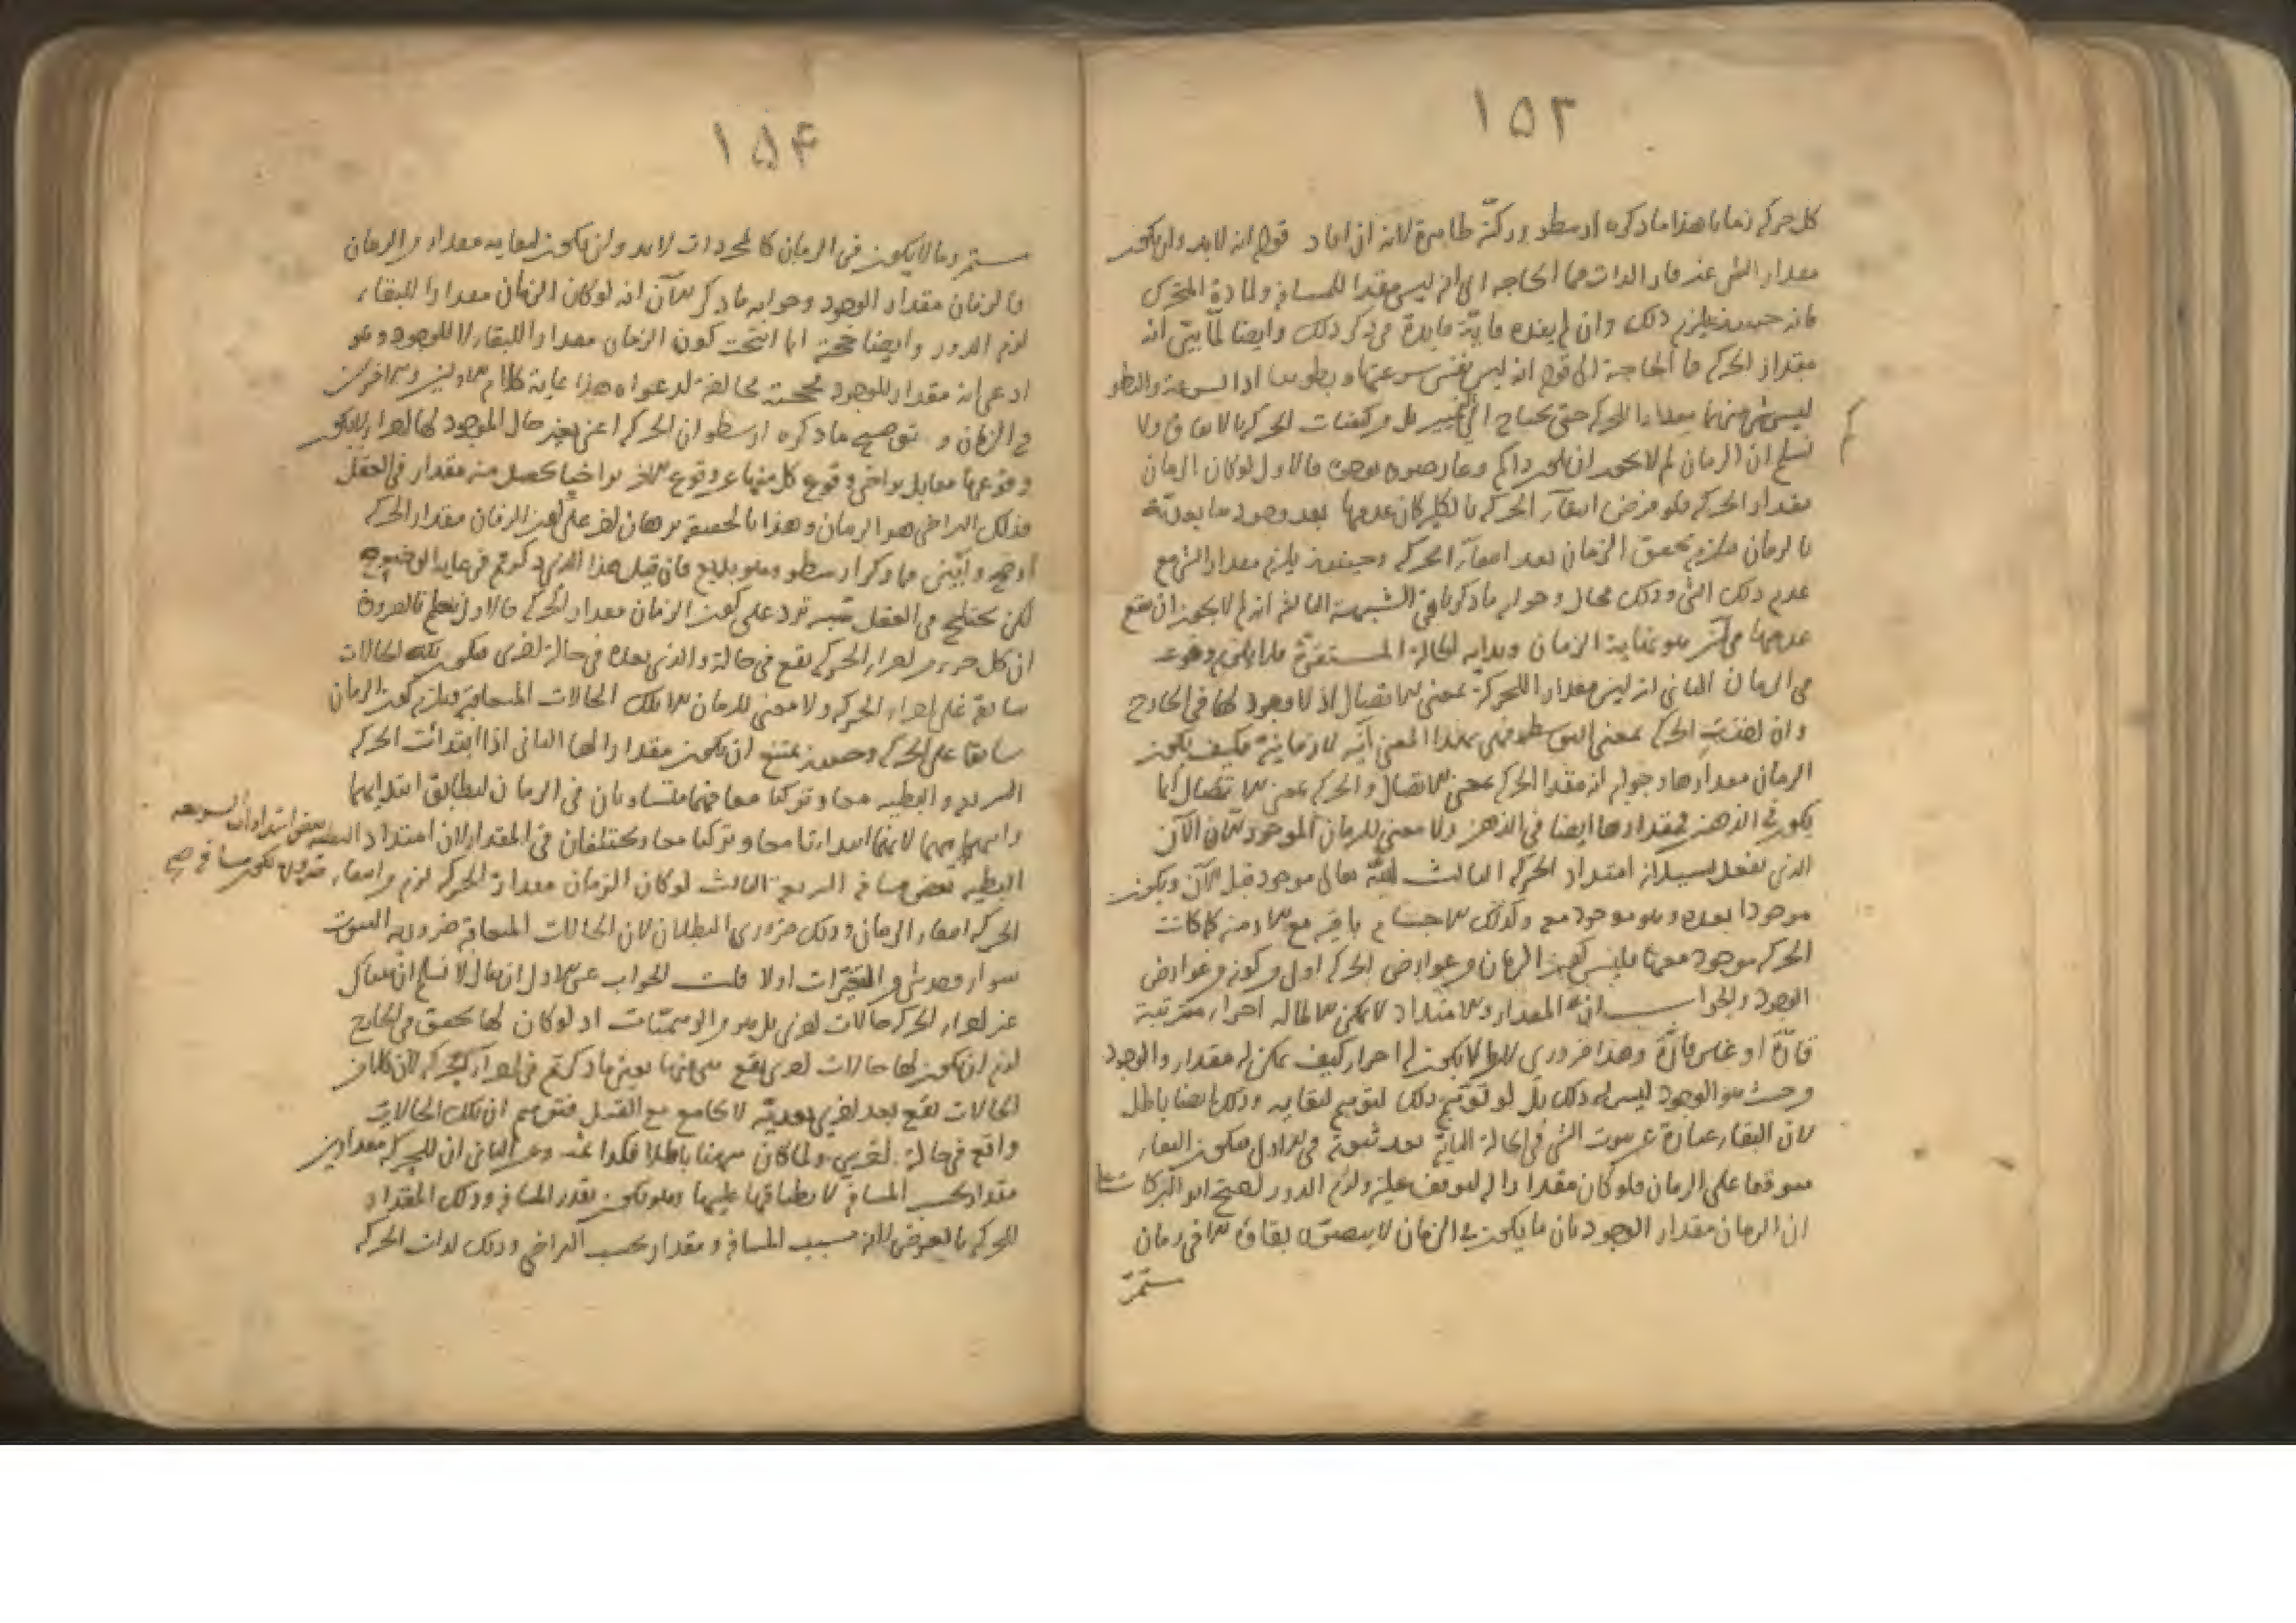 ١٥٣
كل حركة زمانا هذا ما ذكره ارسطو وركته ظاهرة لانه ان افاد قوله انه لابد وان يكون
مقدار الشئ غير قار الذات فما الحاجة الى انه ليس مقدار للمسافة ولمادة المتحرك
فانه حينئذ يلزم ذلك وان لم يفده فاية فايدة فى ذكر ذلك وايضا لما بين انه
مقدار الحركة فما الحاجة الى قوله انه ليس نفس سرعتها وبطوءها اذ السرعة والبطو
ليس شئ منهما مقدارا للحركة حتى يحتاج الى بل من كيفيات الحركة بالاتفاق ولا
نسلم ان الزمان لم لا يجوز ان وعارضوه بوجوه فالاول لوكان الزمان
مقدار الحركة فلو فرض انتفاء الحركة بالكلية كان عدمها بعد وجودها بعدية
بالزمان فيلزم تحقق الزمان بعد انتفاء الحركة وحينئذ يلزم مقدار الشئ مع
عدم ذلك الشئ وذلك محال وجوابه ما ذكرنا فى الشبهة الثالثة انه لم لا يجوز ان يقع
عدمها فى آن هو نهاية الزمان وبداية الحالة المستقرة فلا يلزم وقوعه
فى الزمان الثانى انه ليس مقدارا للحركة بمعنى الاتصال اذ لا وجود لها فى الخارج
وان اخذت الحركة بمعنى التوسط فهى بهذا المعنى آنية لا زمانية فكيف يكون
الزمان مقدارها وجوابه انه مقدار الحركة بمعنى الاتصال والحركة بمعنى الاتصال انما
يكون فى الذهن فمقدارها ايضا فى الذهن ولا معنى للزمان الموجود الا ان الآن
الذى يفعل بسيلانه امتداد الحركة الثالث الله تعالى موجود قبل الآن ويكون
موجودا بعده وهو موجود معه وكذلك الاجسام باقية مع الازمنة كما كانت
الحركة موجودة معها فليس كون الزمان من عوارض الحركة اولى من كونه من عوارض
الوجود والجواب ان المقدار والامتداد لا يمكن الا لما له اجزاء مترتبة
قارة او غير قارة وهذا ضرورى اذ ما لا يكون له اجزاء كيف يمكن له مقدار والوجود
من حيث هو الوجود ليس له ذلك بل لو توهم ذلك لتوهم لبقائه وذلك ايضا باطل
لان البقاء عبارة عن ثبوت الشئ فى الحالة الثانية بعد ثبوته فى الاولى فيكون البقاء
متوقفا على الزمان فلو كان مقدارا له لتوقف عليه ولزم الدور احتج ابو البركات
ان الزمان مقدار الوجود بان ما يكون فى الزمان لا يتصور بقاؤه الا فى زمان
مستمر
١٥۴
مستمر وما لا يكون فى الزمان كالمجردات لابد وان يكون لبقايه مقدار من الزمان
فالزمان مقدار الوجود وجوابه ما ذكر الآن انه لو كان الزمان مقدارا للبقاء
لزم الدور وايضا حجته انما انتجت كون الزمان مقدارا للبقاء لا للوجود وهو
ادعى انه مقدار للوجود فحجته مخالفة لدعواه هذا غاية كلام الاولين والآخرين
فى الزمان و توضيح ما ذكره ارسطو ان الحركة اعنى تغير حال الموجود لها اجزاء لا يكون
وقوعها معا بل يتراخى وقوع كل منها عن وقوع الاخر تراخيا يحصل منه مقدار فى العقل
فذلك التراخى هو الزمان وهذا بالحقيقة برهان اخر على ان الزمان مقدار الحركة
اوضح وابين مما ذكر ارسطو وهو بديع فان قيل هذا الذى ذكرتم فى غاية الوضوح
لكن يختلج فى العقل شبه ترد على كون الزمان مقدار الحركة فالاول نعلم بالضرورة
ان كل جزء من اجزاء الحركة يقع فى حالة والذى بعده فى حالة اخرى فيكون تلك الحالات
سابقة على اجزاء الحركة ولا معنى للزمان الا تلك الحالات المتعاقبة فيلزم كون الزمان
سابقا على الحركة وحينئذ يمتنع ان يكون مقدارا لها الثانى اذا ابتدأت الحركة
السريعة والبطيئة معا وتركتا معا فهما متساويان فى الزمان لتطابق ابتدائهما
وانتهائهما لانهما ابتدأتا معا وتركتا معا ومختلفان فى المقدار لان امتداد البطيئة بعض امتداد السريعة
ضرورة كون مسافة صح
البطيئة بعض مسافة السريعة الثالث لو كان الزمان مقدار الحركة لزم من انتفاء
الحركة انتفاء الزمان وذلك ضرورى البطلان لان الحالات المتعاقبة ضرورية الثبوت
سواء وجد شئ من المتغيرات او لا قلت الجواب عن الاول ان يقال لا نسلم ان هناك
غير اجزاء الحركة حالات اخرى بل هو من الوهميات اذ لو كان لها تحقق فى الخارج
لزم ان يكون لها حالات اخرى يقع هى فيها بعين ما ذكرتم فى اجزاء الحركة لان كلا من
الحالات تقع بعد اخرى بعدية لا تجامع مع القبل فتوهم ان تلك الحالات
واقع فى حالة اخرى ولما كان ههنا باطلا فكذا ثمه وعن الثانى ان للحركة مقدارين
مقدار بحسب المسافة لانطباقها عليها وهو يكون بقدر المسافة وذلك المقدار
للحركة بالعرض لانه بسبب المسافة ومقدار بحسب التراخى وذلك لذات الحركة